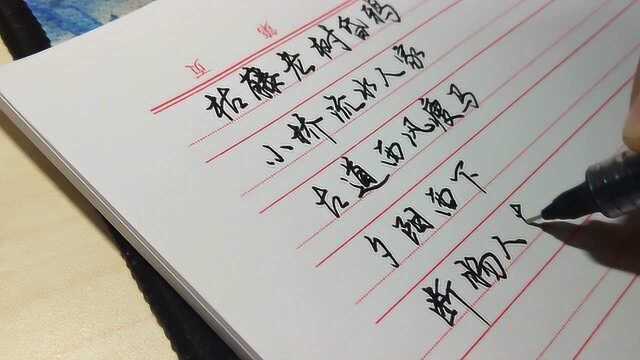 第 页
枯藤老树昏鸦
小桥流水人家
古道西风瘦马
夕阳西下
断肠人